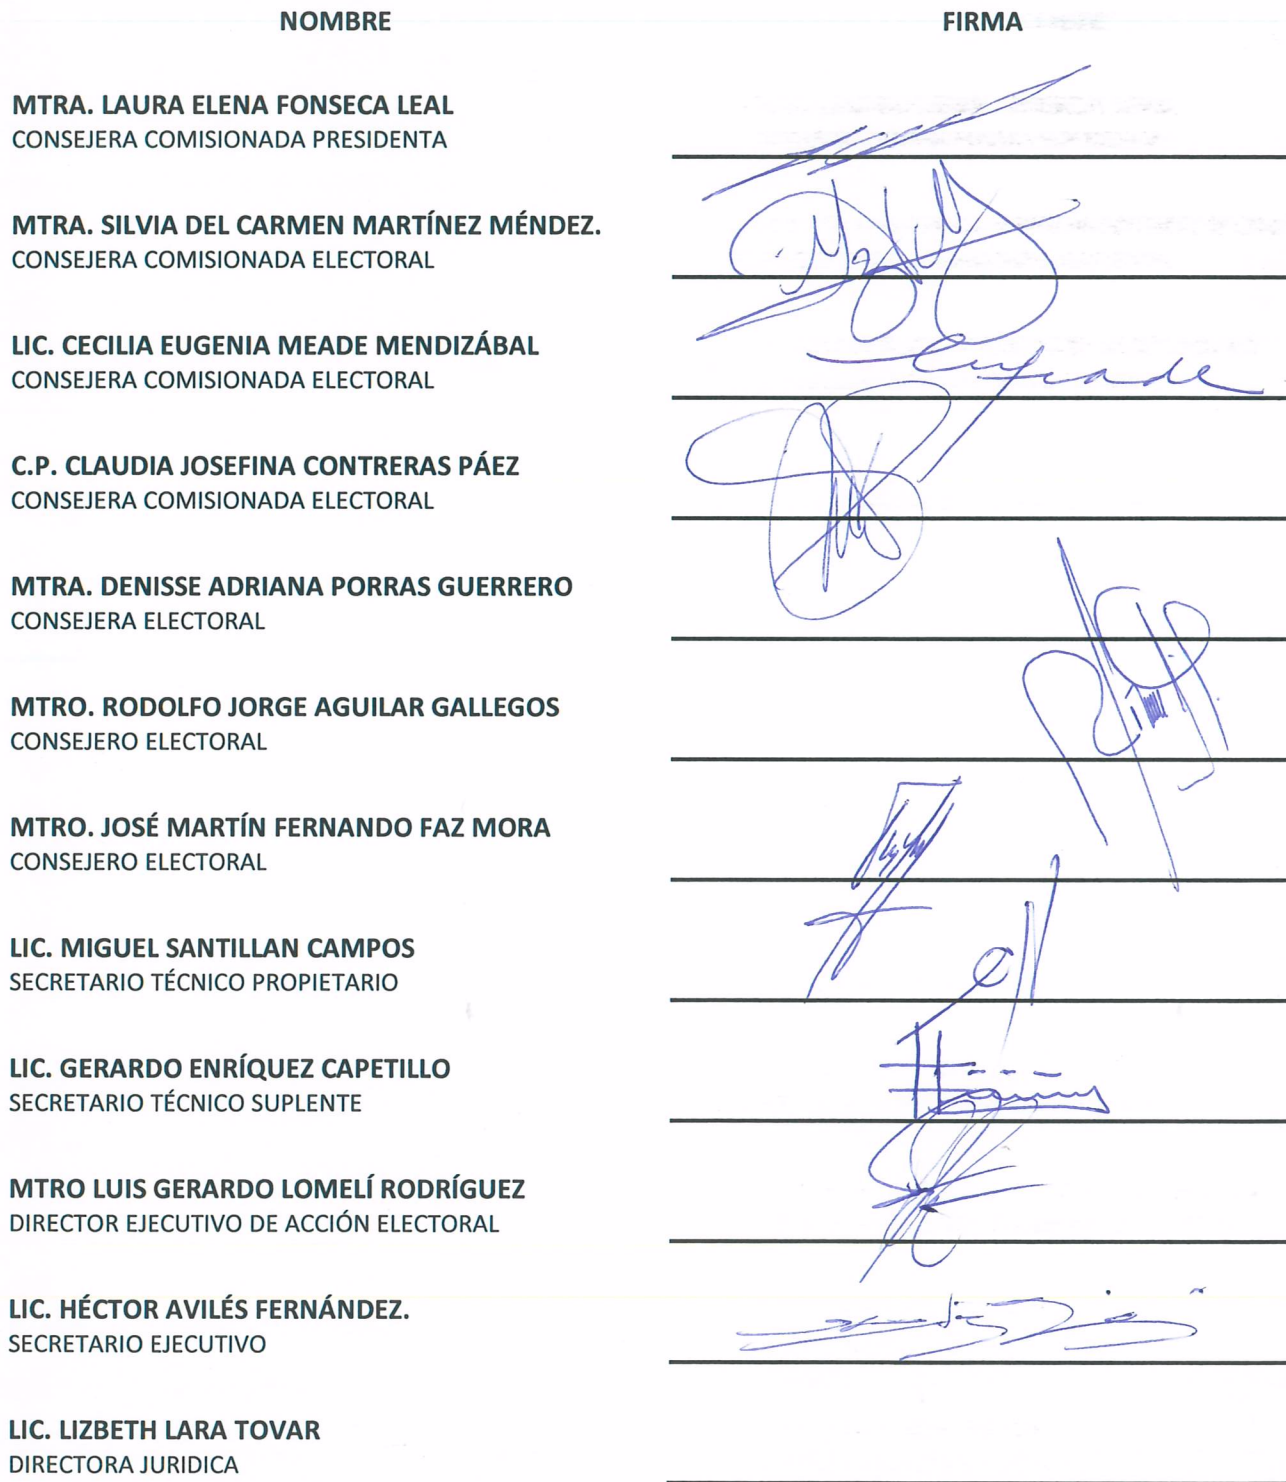 NOMBRE FIRMA
MTRA. LAURA ELENA FONSECA LEAL
CONSEJERA COMISIONADA PRESIDENTA
MTRA. SILVIA DEL CARMEN MARTÍNEZ MÉNDEZ.
CONSEJERA COMISIONADA ELECTORAL
LIC. CECILIA EUGENIA MEADE MENDIZÁBAL
CONSEJERA COMISIONADA ELECTORAL
C.P. CLAUDIA JOSEFINA CONTRERAS PÁEZ
CONSEJERA COMISIONADA ELECTORAL
MTRA. DENISSE ADRIANA PORRAS GUERRERO
CONSEJERA ELECTORAL
MTRO. RODOLFO JORGE AGUILAR GALLEGOS
CONSEJERO ELECTORAL
MTRO. JOSÉ MARTÍN FERNANDO FAZ MORA
CONSEJERO ELECTORAL
LIC. MIGUEL SANTILLAN CAMPOS
SECRETARIO TÉCNICO PROPIETARIO
LIC. GERARDO ENRÍQUEZ CAPETILLO
SECRETARIO TÉCNICO SUPLENTE
MTRO LUIS GERARDO LOMELÍ RODRÍGUEZ
DIRECTOR EJECUTIVO DE ACCIÓN ELECTORAL
LIC. HÉCTOR AVILÉS FERNÁNDEZ.
SECRETARIO EJECUTIVO
LIC. LIZBETH LARA TOVAR
DIRECTORA JURIDICA